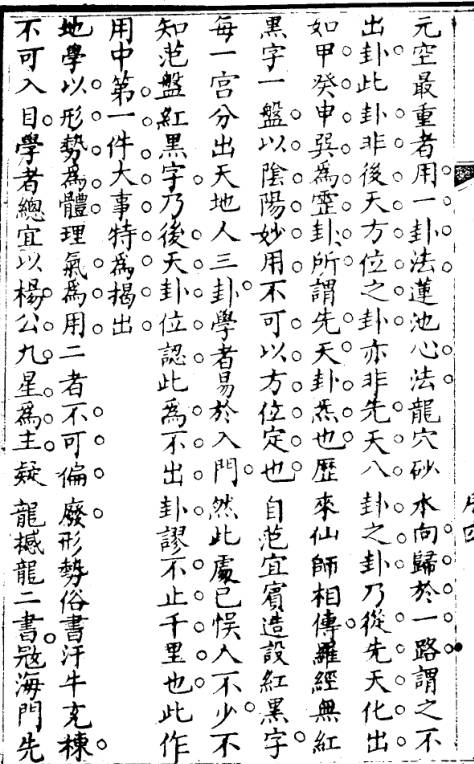 元空最重者用一卦法蓮池心法龍穴砂水向歸於一路謂之不
出卦此卦非後天方位之卦亦非先天八卦之卦乃從先天化出
如甲癸申巽為靈卦所謂先天卦炁也歷來仙師相傳羅經無紅
黑字一盤以陰陽妙用不可以方位定也自范宜賓造設紅黑字
每一宮分出天地人三卦學者易於入門然此處已悞人不少不
知范盤紅黑字乃後天卦位認此為不出卦謬不止千里也此作
用中第一件大事特為揭出
地學以形勢為體理氣為用二者不可偏廢形勢俗書汗牛充棟
不可入目學者總宜以楊公九星為主疑龍撼龍二書冦海門先